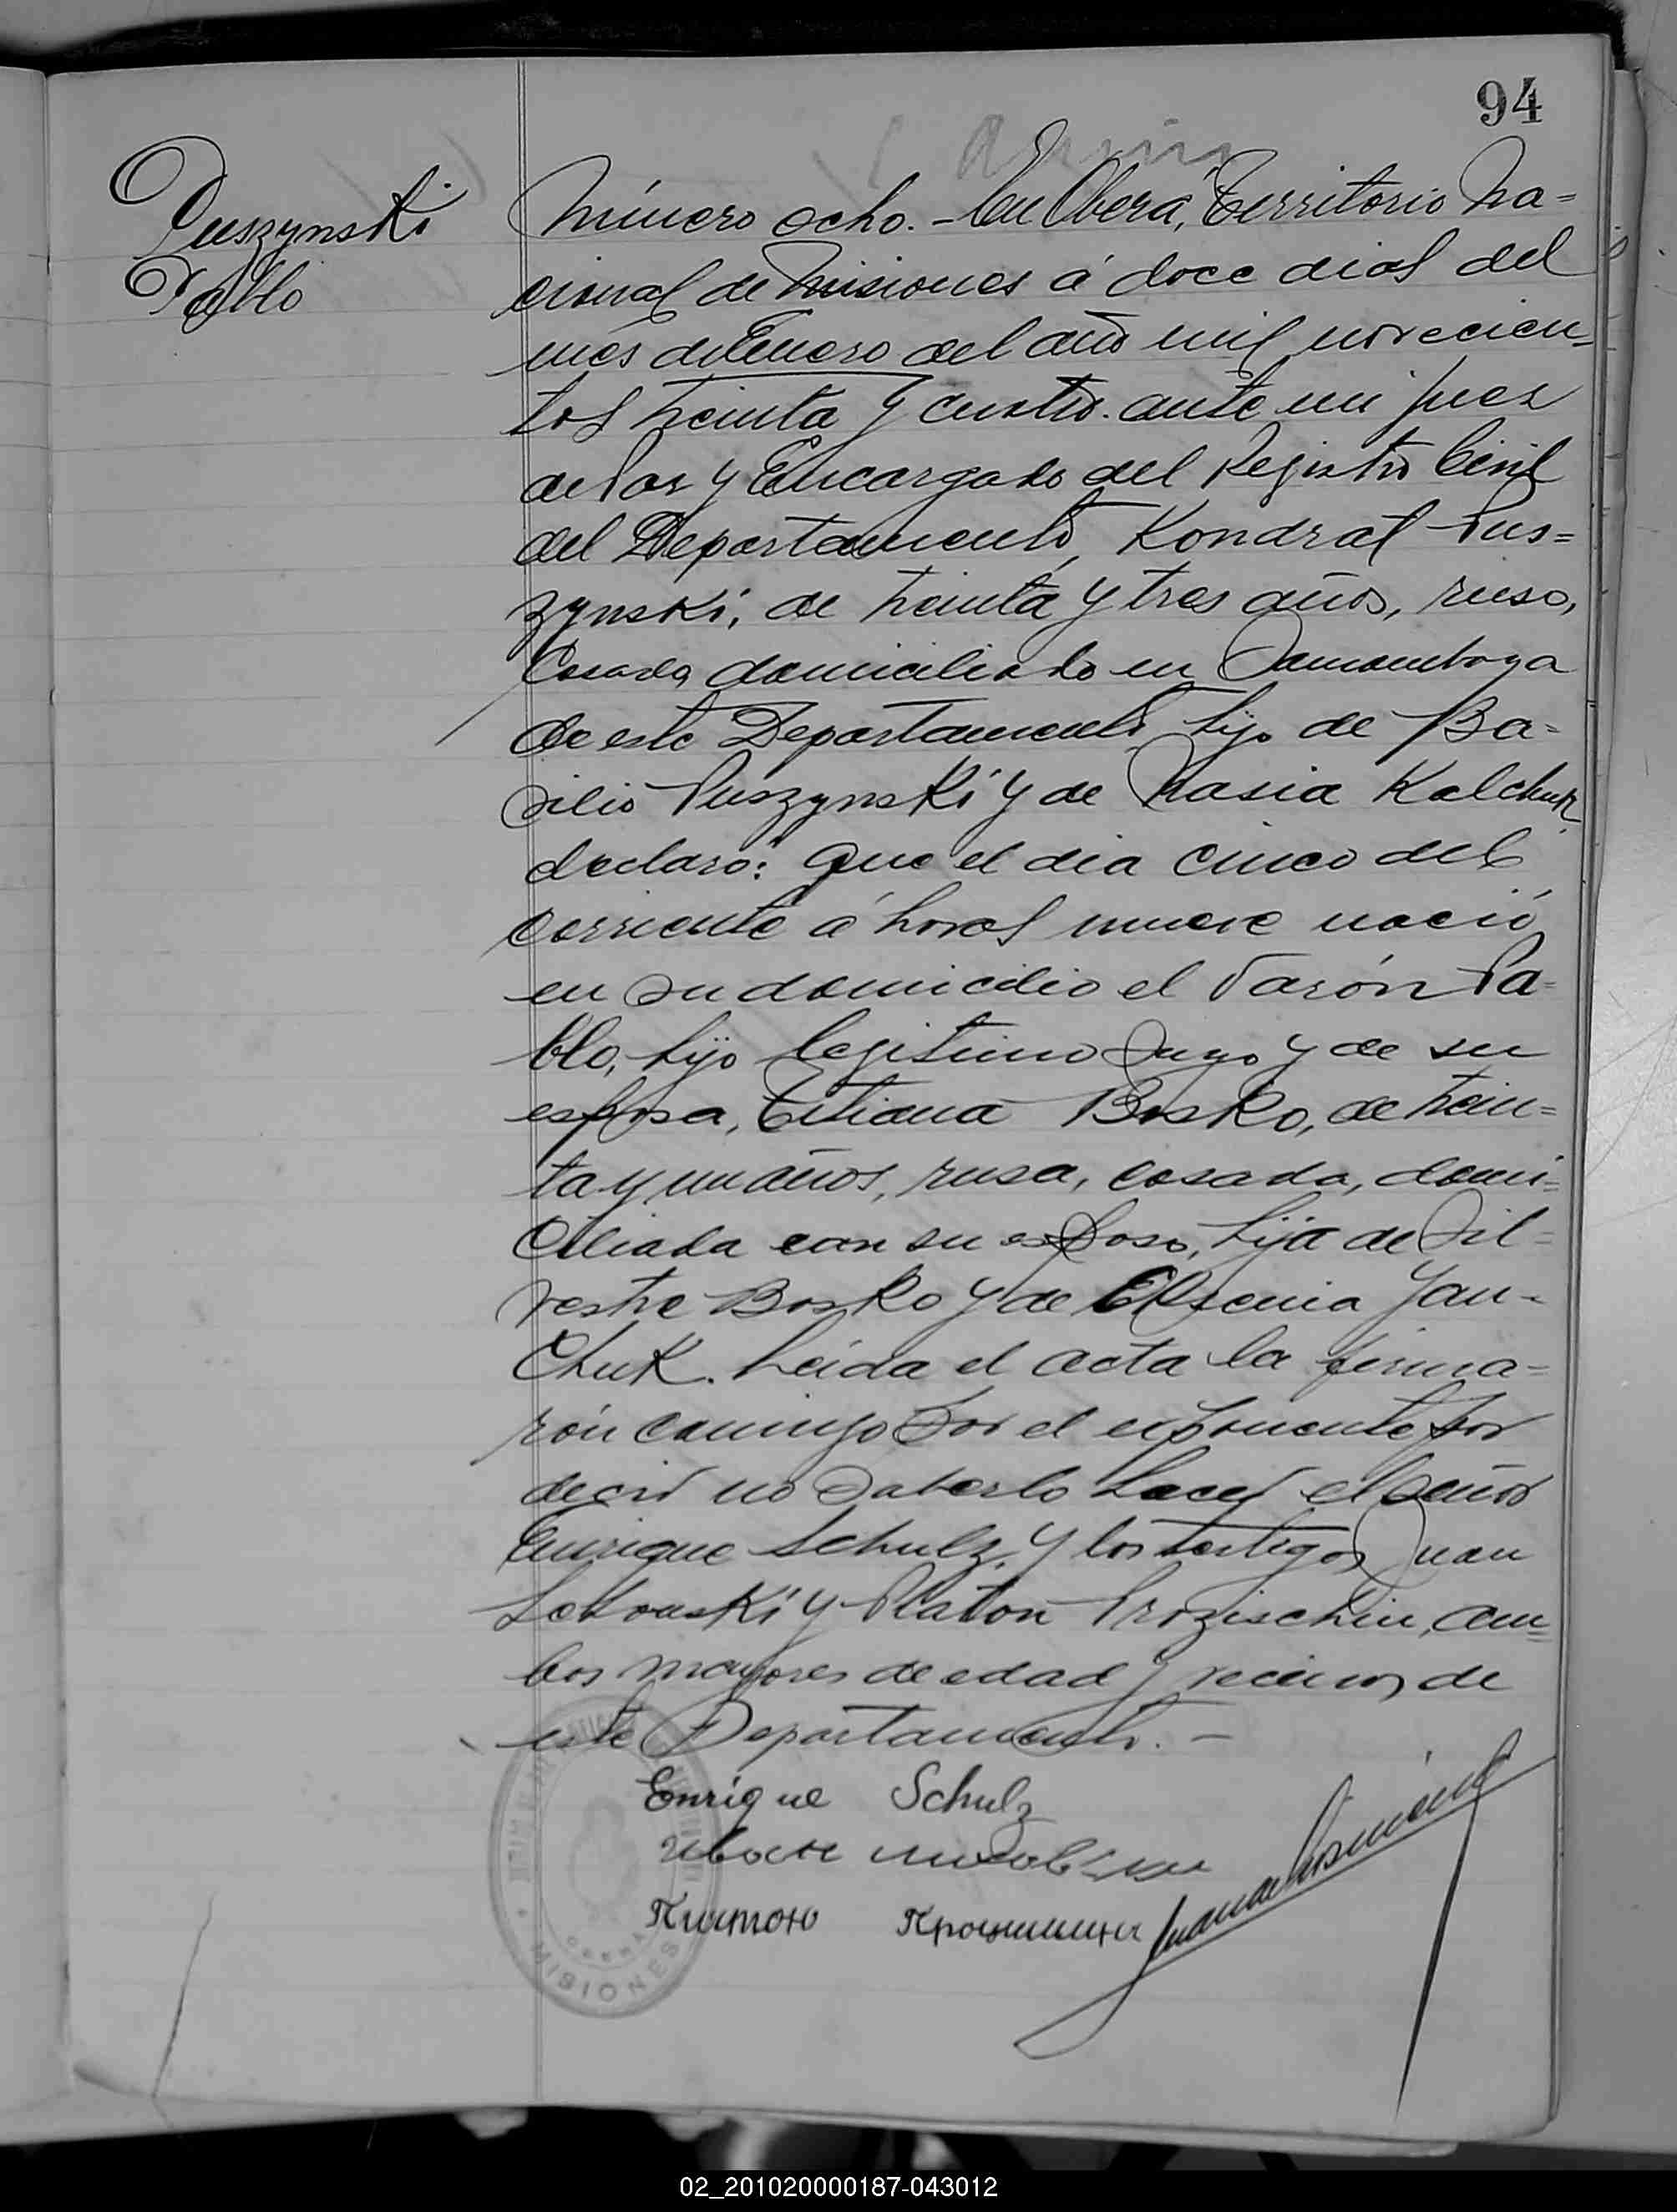 94
Puszynski
Pablo
Número ocho.- En Oberá, Territorio Na=
cional de Misiones á doce dias del
mes de Enero del año mil novecien=
tos treinta y cuatro. ante mi juez
de Paz y Encargado del Registro Civil
del Departamento, Kondrat Pus=
zynski, de treinta y tres años, ruso,
Casado, domiciliado en Samambaya
de este Departamento, hijo de Ba=
silio Puszynski y de Nasia Kalchuk
declaró: que el dia cinco del
corriente á horas nueve nació
en su domicilio el Varón Pa=
blo, hijo legitimo suyo y de su
esposa, Titiana Bosko, de trein=
ta y un años, rusa, casada, domi=
ciliada con su esposo, hija de Sil=
vestre Bosko y de Efsenia Jan-
Chuk. Leida el acta la firma=
rón conmigo por el exponente por
decir no saberlo hacer el señor
Enrique Schulz, y los testigos Juan
y Platon Prozischin, am=
bos mayores de edad y vecinos de
este Departamento.-
Enrique Schulz
Иван
Платон
MISIONES
02_201020000187-043012